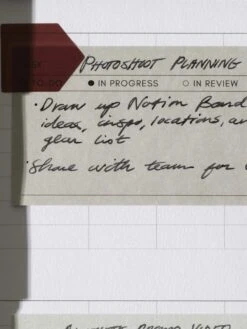 PHOTOSHOOT PLANNING
TO-DO ● IN PROGRESS ○ IN REVIEW
· Draw up Notion Board
ideas, inspo, locations, an
gear list
· Share with team for
PROMO VIDEO